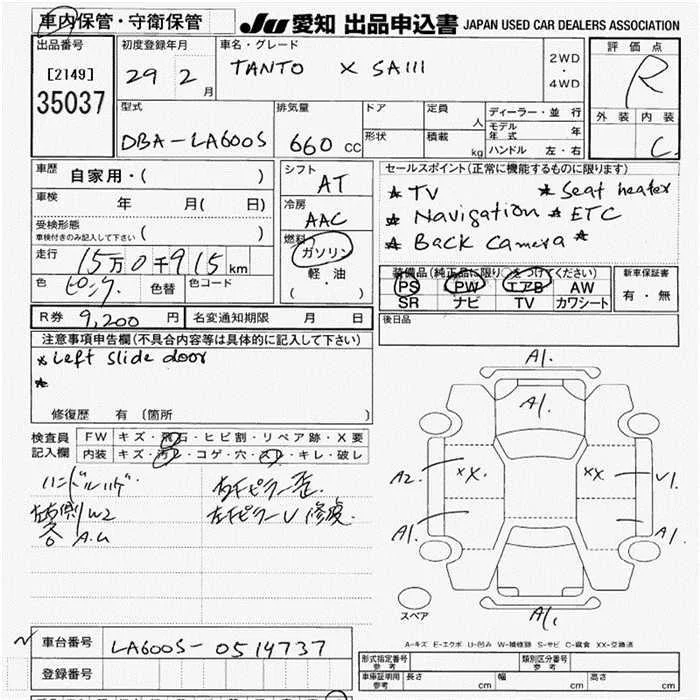 車内保管・守衛保管
JU 愛知 出品申込書 JAPAN USED CAR DEALERS ASSOCIATION
出品番号
[2149]
35037
初度登録年月
29 2 月
車名・グレード
TANTO X SAIII
2WD
・
4WD
評価点
R
外装 内装
C
型式
DBA-LA600S
排気量
660 cc
ドア
形状
定員 人
積載 kg
ディーラー・並行
モデル年式 年
ハンドル 左・右
車歴
自家用・( )
車検 年 月( 日)
受検形態
車検付きのみ記入して下さい ( )
走行
15万0千915 km
色 ピンク. 色替 色コード
シフト
AT
冷房
AAC
燃料
ガソリン
軽油
( ・ )
セールスポイント(正常に機能するものに限ります)
* TV * Seat heater
* Navigation * ETC
* Back Camera *
装備品(純正品に限り○をつけてください)
PS PW エアB AW
SR ナビ TV カワシート
新車保証書
有・無
R券 9,200 円 名変通知期限 月 日
後日品
注意事項申告欄(不具合内容等は具体的に記入して下さい)
* Left slide door
*
修復歴 有 (箇所 )
検査員
記入欄
FW キズ・飛石・ヒビ割・リペア跡・X要
内装 キズ・汚レ・コゲ・穴・スレ・キレ・破レ
ハンドルハゲ
左右側 W2
各 A.U
右Fピラー歪.
左Fピラー U 修復.
A1.
A1.
A2. XX. XX. U1.
A1. A1.
A1.
スペア
A-キズ E-エクボ U-凹み W-補修跡 S-サビ C-腐食 XX-交換済
車台番号 LA600S-0514737
登録番号
型式指定番号
参考
類別区分番号
参考
車庫証明用
参考
長さ cm 幅 cm 高さ cm